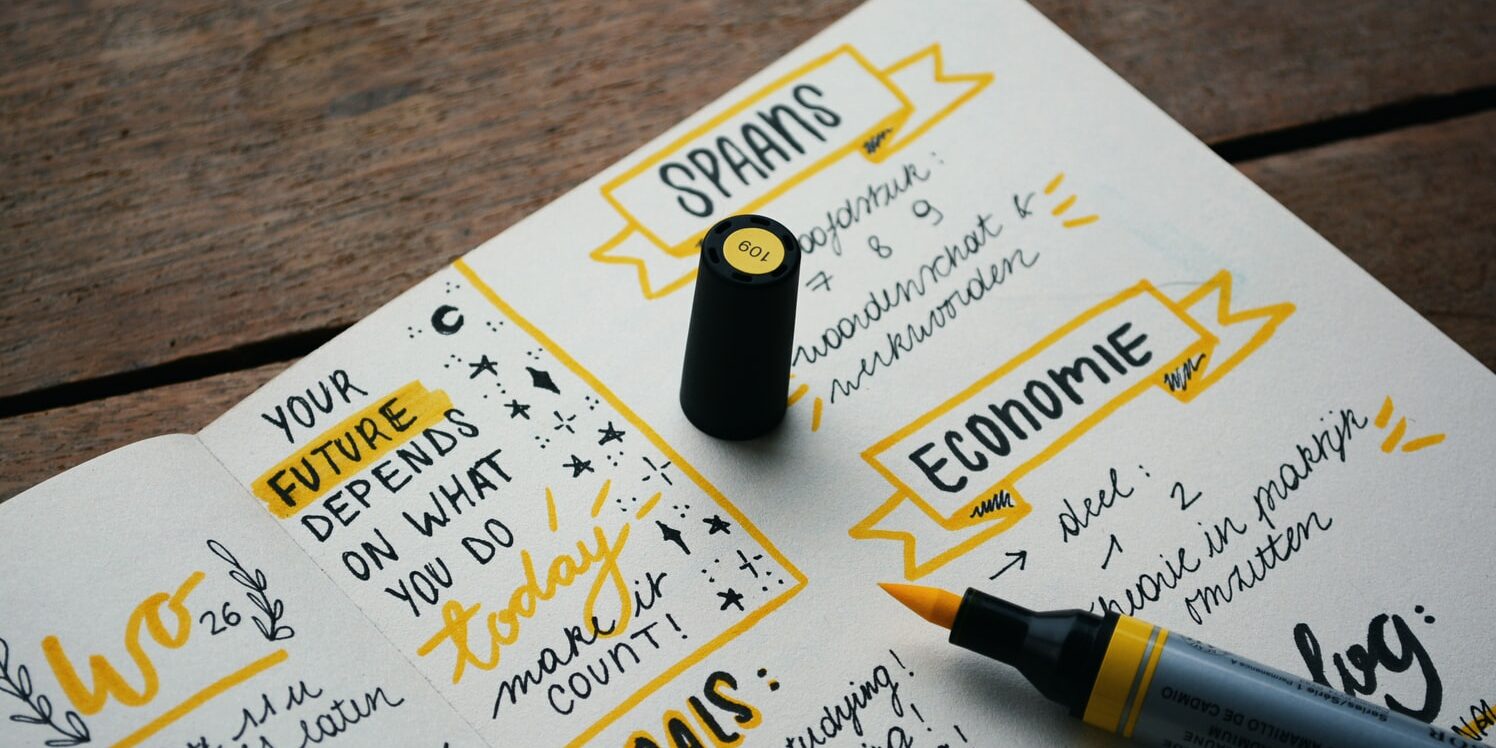 SPAANS
7 8 9
woordenschat &
werkwoorden
109
ECONOMIE
→ deel:
1 2
theorie in praktijk
omzetten
YOUR
FUTURE
DEPENDS
ON WHAT
YOU DO
today
make it
COUNT!
wo
26
11 u
laten
studying!
log:
AMARILLO DE CADMIO
Series/Série 1 Permanence A